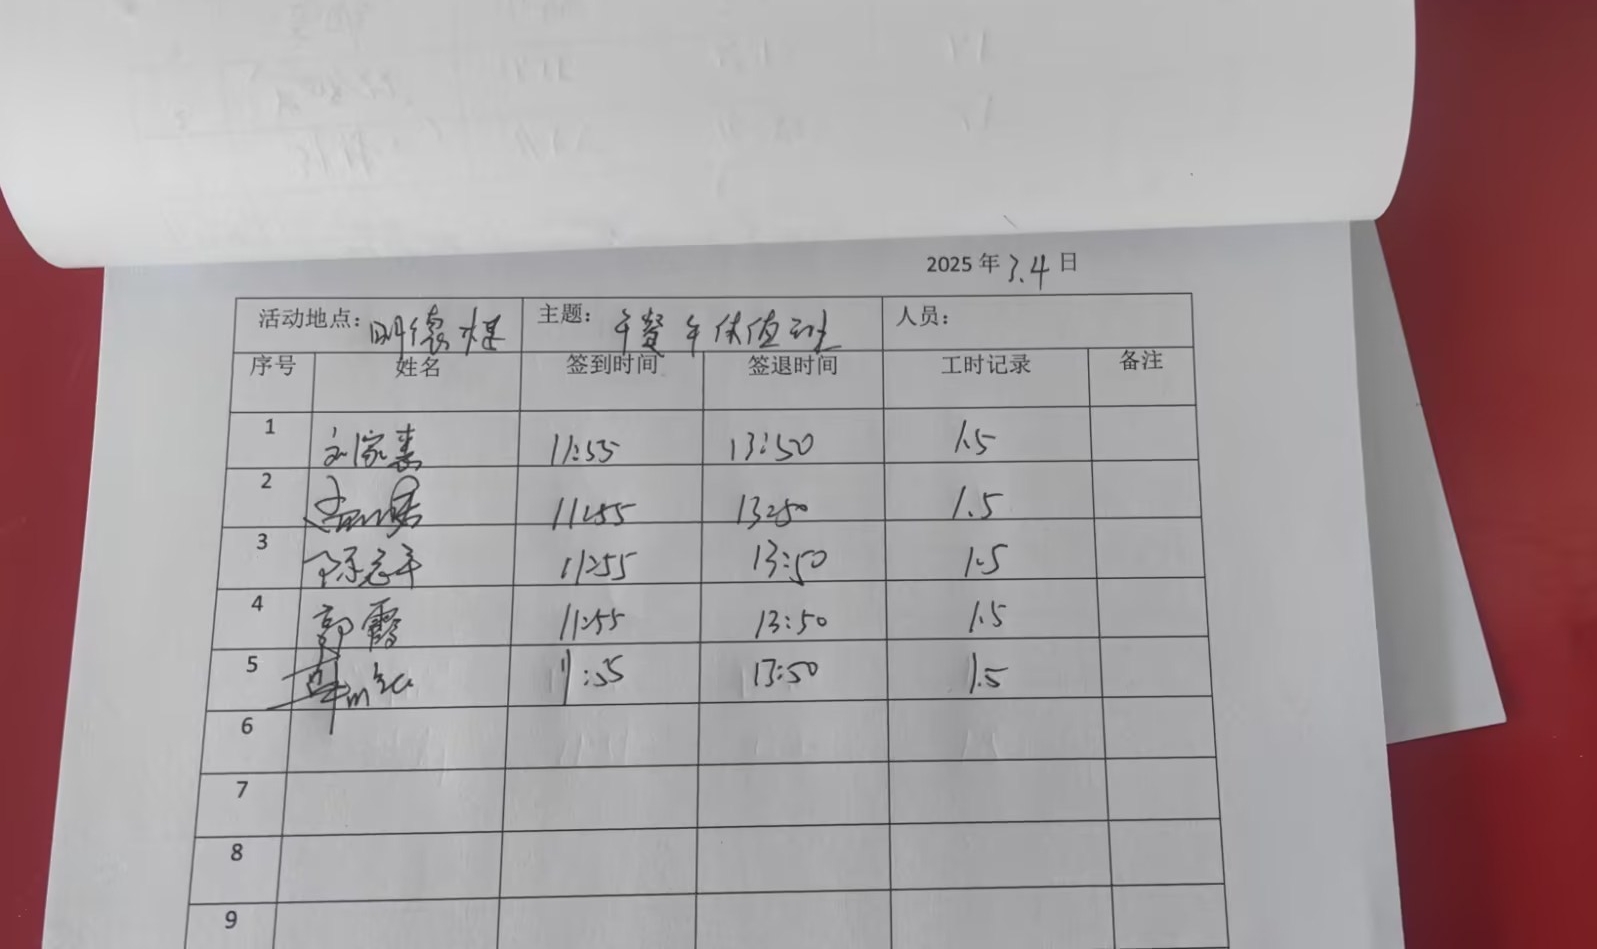 2025 年 3.4 日
活动地点: 明德楼 主题: 午餐午休值班 人员:
序号 姓名 签到时间 签退时间 工时记录 备注
1 刘家素 11:55 13:50 1.5
2 11:55 13:50 1.5
3 11:55 13:50 1.5
4 郭霞 11:55 13:50 1.5
5 11:55 13:50 1.5
6
7
8
9